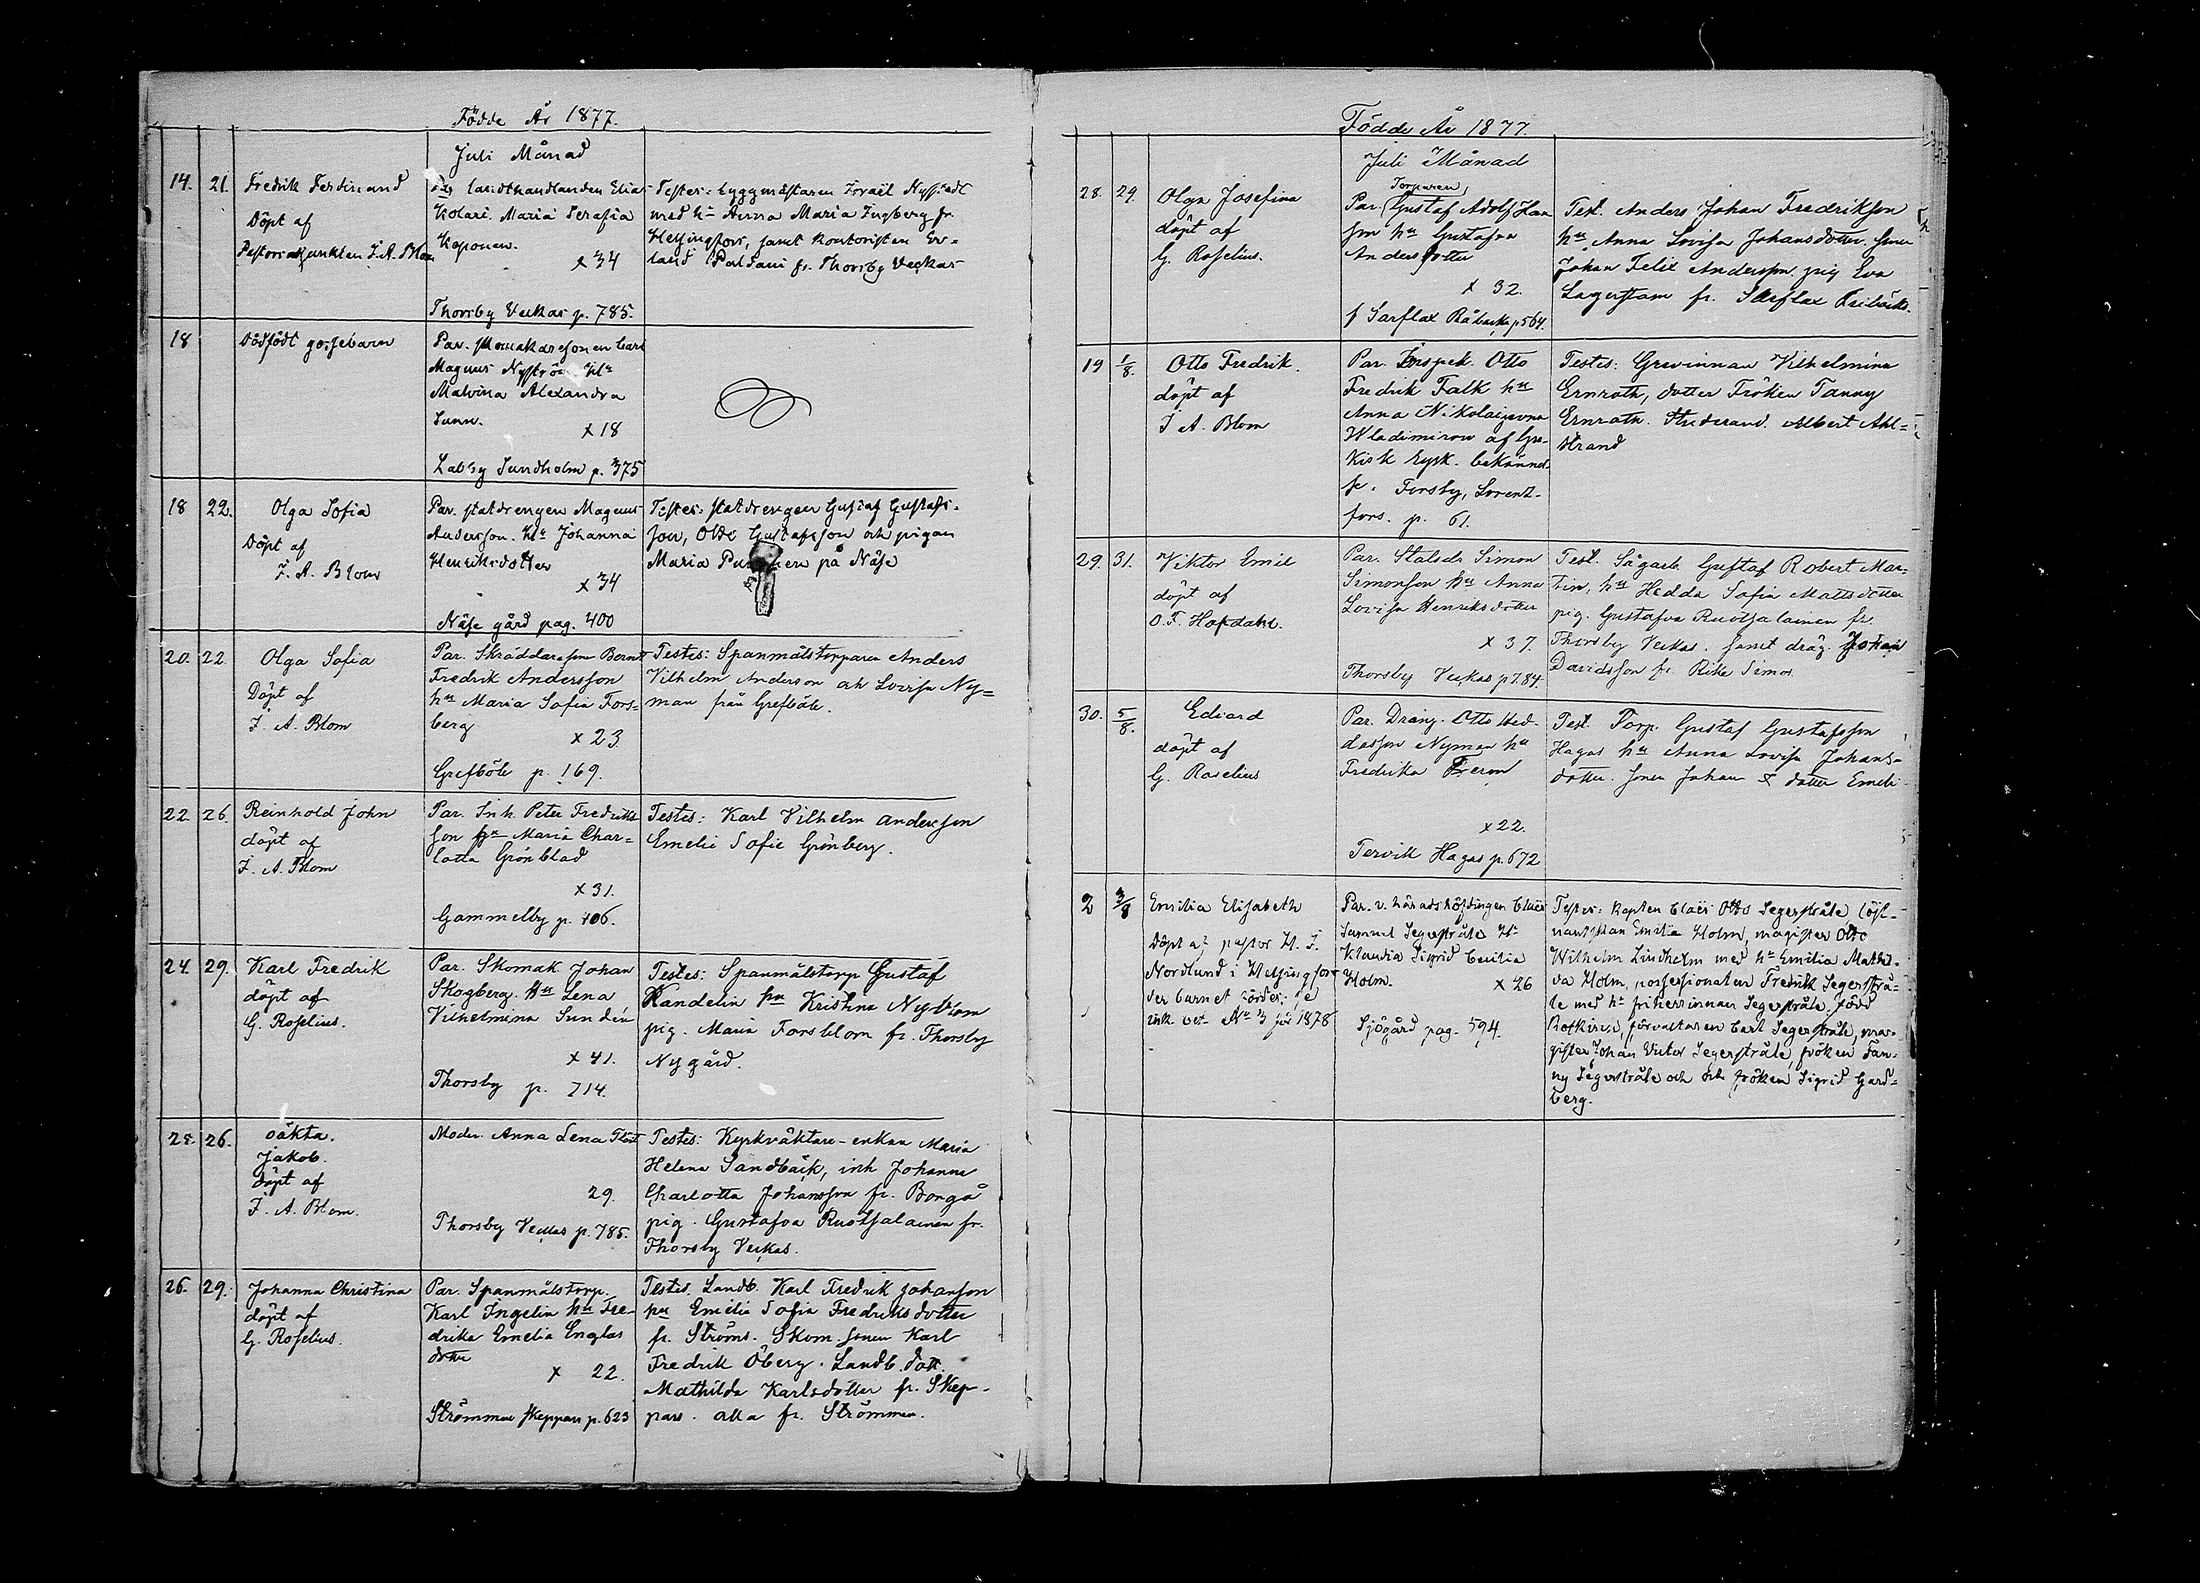 Födde År 1877.
Juli Månad
14. 21. Fredrik Ferdinand
Döpt af
Pastorsadjunkten F. A. Blom
Par landthandlanden Elias
Kolari. Maria Serafia
Koponen.
x 34
Thorsby Veckas p. 785.
Testes: byggmästaren Israel Nystedt
med hu Anna Maria Engberg fr
Helsingfors, samt kontoristen Er-
land Paldani fr. Thorsby Veckas
18 Dödfödt gossebarn
Par. skomakaresonen Carl
Magnus Nyström hu
Malvina Alexandra
Sunn.
x 18
Labby Sundholm p. 375
18 22. Olga Sofia
Döpt af
F. A. Blom
Par. statdrengen Magnus
Andersson. hu Johanna
Henriksdotter
x 34
Näse gård pag. 400
Testes: statdrengen Gustaf Gustafs-
son, Otto Gustafsson och pigan
Maria på Näse
20. 22. Olga Sofia
Döpt af
F. A. Blom
Par. Skräddareson Bernt
Fredrik Andersson
hu Maria Sofia Fors-
berg
x 23.
Grefböle p. 169.
Testes: Spanmålstorparen Anders
Vilhelm Anderson och Lovisa Ny=
man från Grefböle.
22. 26. Reinhold John
döpt af
F. A. Blom
Par. Inh. Peter Fredriks
son hu Maria Char=
lotta Grönblad
x 31.
Gammelby p. 106.
Testes: Karl Vilhelm Andersson
Emelie Sofie Grönberg.
24. 29. Karl Fredrik
döpt af
G. Roselius.
Par. Skomak Johan
Skogberg. hu Lena
Vilhelmina Sundén
x 41.
Thorsby p. 714.
Testes: Spanmålstorp Gustaf
Kandelin hu Kristina Nyblom
pig. Maria Forsblom fr. Thorsby
Nygård.
25. 26. oäkta.
Jakob.
döpt af
F. A. Blom.
Moder. Anna Lena
29.
Thorsby Veckas p. 785.
Testes: Kyrkväktare-enkan Maria
Helena Sandbäck, inh Johanna
Charlotta Johansson fr. Borgå
pig. Gustafva Ruotsalainen fr.
Thorsby Veckas.
26. 29. Johanna Christina
döpt af
G. Roselius.
Par. Spanmålstorp.
Karl Ingelin hu Fre-
drika Emelia Englas
dotter
x 22.
Strömmen Skeppars p. 623
Testes. Landb. Karl Fredrik Johansson
hu Emilia Sofia Fredriksdotter
fr. Ströms. Skom. sonen Karl
Fredrik Öberg. Landb. dott.
Mathilda Karlsdotter fr. Skep-
pars. alla fr. Strömmen.
Födde År 1877.
Juli Månad
28. 29. Olga Josefina
döpt af
G. Roselius.
Torparen
Par. Gustaf Adolf Han
son hu Gustafva
Andersdotter
x 32.
f Sarflax Råbacka p 564.
Test. Anders Johan Fredriksson
hu Anna Lovisa Johansdotter. sonen
Johan Felix Andersson pig Eva
Lagerstam fr. Sarflax
19 1/8. Otto Fredrik.
döpt af
F. A. Blom
Par. Inspek. Otto
Fredrik Falk hu
Anna Nikolajevna
Wladimirow af Gre-
kisk rysk. bekännel
se. Forsby, Lorent-
fors. p. 61.
Testes: Grevinnan Vilhelmina
Ernroth, dotter Fröken Fanny
Ernroth. Studerand. Albert Ahl=
strand
29. 31. Viktor Emil
döpt af
O. F. Hofdahl.
Par. Statsdr Simon
Simonson hu Anna
Lovisa Henriksdotter
x 37.
Thorsby Veckas p 784.
Test. Sågarb. Gustaf Robert Mar=
tin, hu Hedda Sofia Mattsdotter
pig. Gustafva Ruotsalainen fr.
Thorsby Veckas. samt dräg. Johan
Davidsson fr. Rike Simos
30. 5/8. Edvard
döpt af
G. Roselius
Par. Dräng. Otto Hed-
dasson Nyman hu
Fredrika
x 22.
Tervik Hagas p. 672
Test. Torp. Gustaf Gustafsson
Hagas hu Anna Lovisa Johans-
dotter. sonen Johan & dotter Emeli
2 3/8 Emilia Elisabeth
Döpt af pastor H. J.
Nordlund i Helsingfors
der barnet föddes; se
ink. bet. No 3 för 1878
Par. v. häradshöfdingen Claës
Samuel Segerstråle Hu
Klaudia Sigrid Cecilia
Holm.
x 26
Sjögård pag. 594.
Testes: kapten Claës Otto Segerstråle, löjt-
nantskan Emilia Holm, magister Otto
Wilhelm Lindholm med hu Emilia Mathil-
da Holm, possessionaten Fredrik Segerstrå-
le med hu friherrinnan Segerstråle, född
Rotkirch, förvaltaren Carl Segerstråle, ma-
gister Johan Victor Segerstråle, fröken Fan-
ny Segerstråle och och fröken Sigrid Gard-
berg.